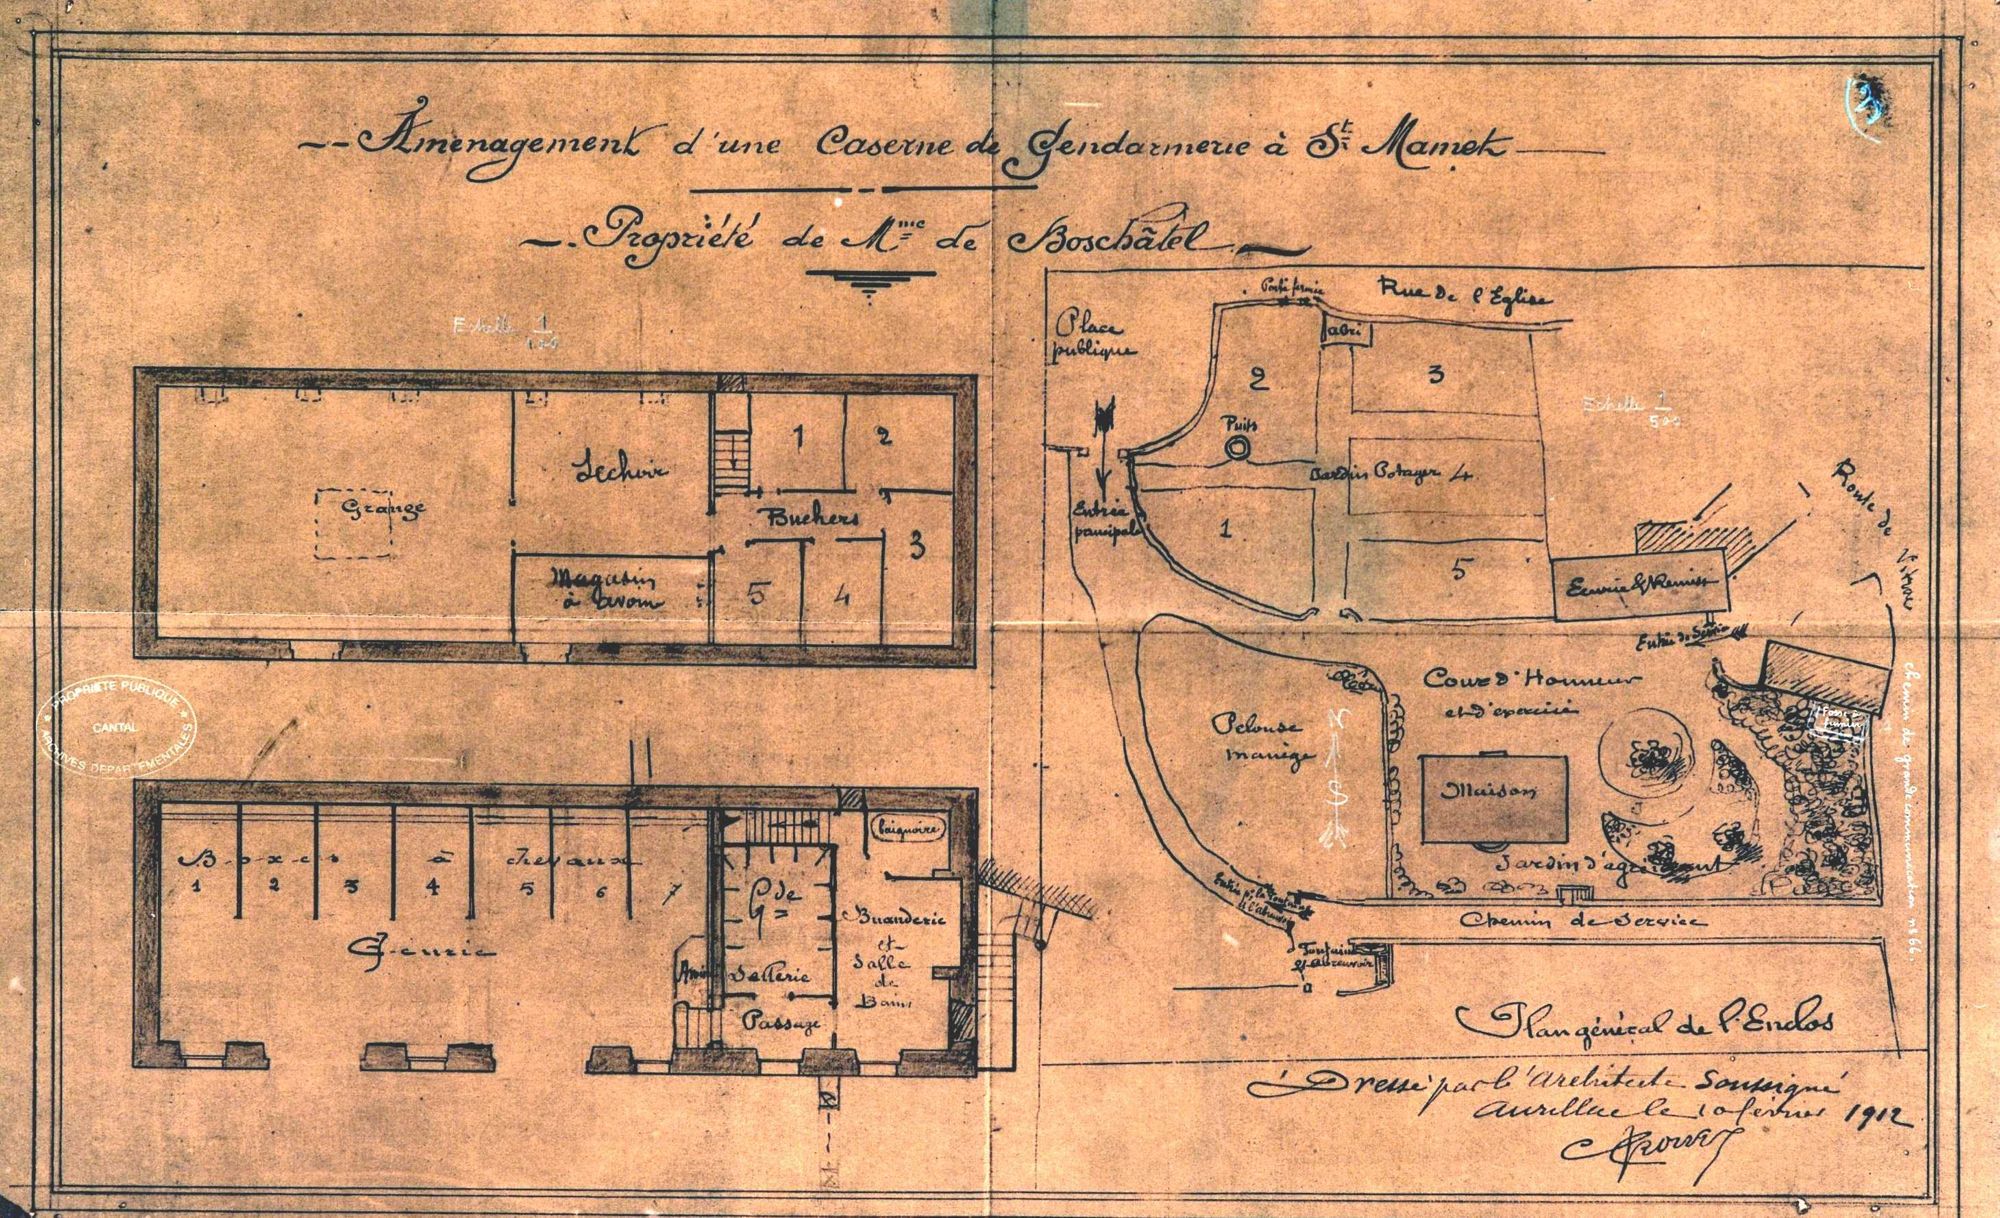 Aménagement d'une Caserne de Gendarmerie à St Mamet
Propriété de Mme de Boschâtel
Echelle 1/100
Grange
Séchoir
Magasin
à avoine
Buchers
1
2
3
4
5
Boxes à chevaux
1 2 3 4 5 6 7
Ecurie
Sellerie
Passage
baignoire
Buanderie
et
Salle
de
Bains
Place
publique
Porte fermée
Rue de l'Eglise
abri
2
3
Echelle 1/500
Puits
Jardin Potager 4
Entrée
principale
1
5
Ecurie & Remise
Route de Vitrac
Entrée de Service
Cour d'Honneur
et d'exercice
Pelouse
manège
Maison
Fosse à
fumier
chemin de grande communication n° 66.
Jardin d'agrément
Chemin de Service
Fontaine
et abreuvoir
Plan général de l'Enclos
Dressé par l'Architecte Soussigné
Aurillac le 10 février 1912
PROPRIETE PUBLIQUE
CANTAL
ARCHIVES DEPARTEMENTALES